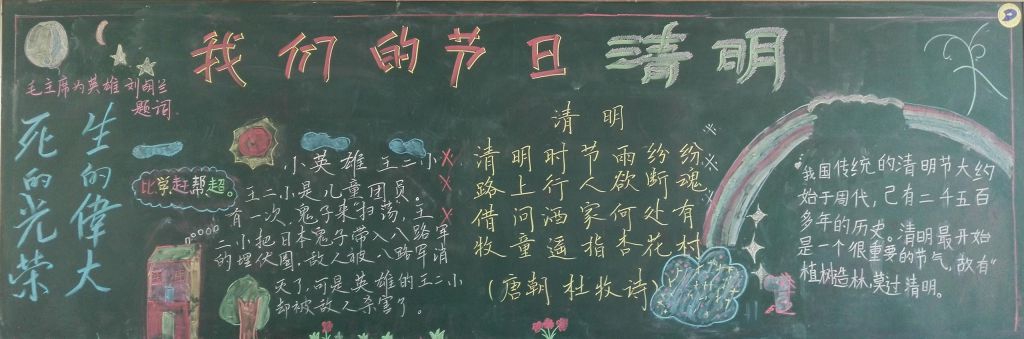 我们的节日清明
毛主席为英雄刘胡兰
题词
生的偉大
死的光荣
比学赶帮超。
小英雄王二小
王二小是儿童团员。
有一次,鬼子来扫荡,王
二小把日本鬼子带入八路军
的埋伏圈,敌人被八路军消
灭了,可是英雄的王二小
却被敌人杀害了。
清明
清明时节雨纷纷
路上行人欲断魂
借问酒家何处有
牧童遥指杏花村
(唐朝杜牧诗)
我国传统的清明节大约
始于周代,已有二千五百
多年的历史。清明最开始
是一个很重要的节气,故有"
植树造林,莫过清明。